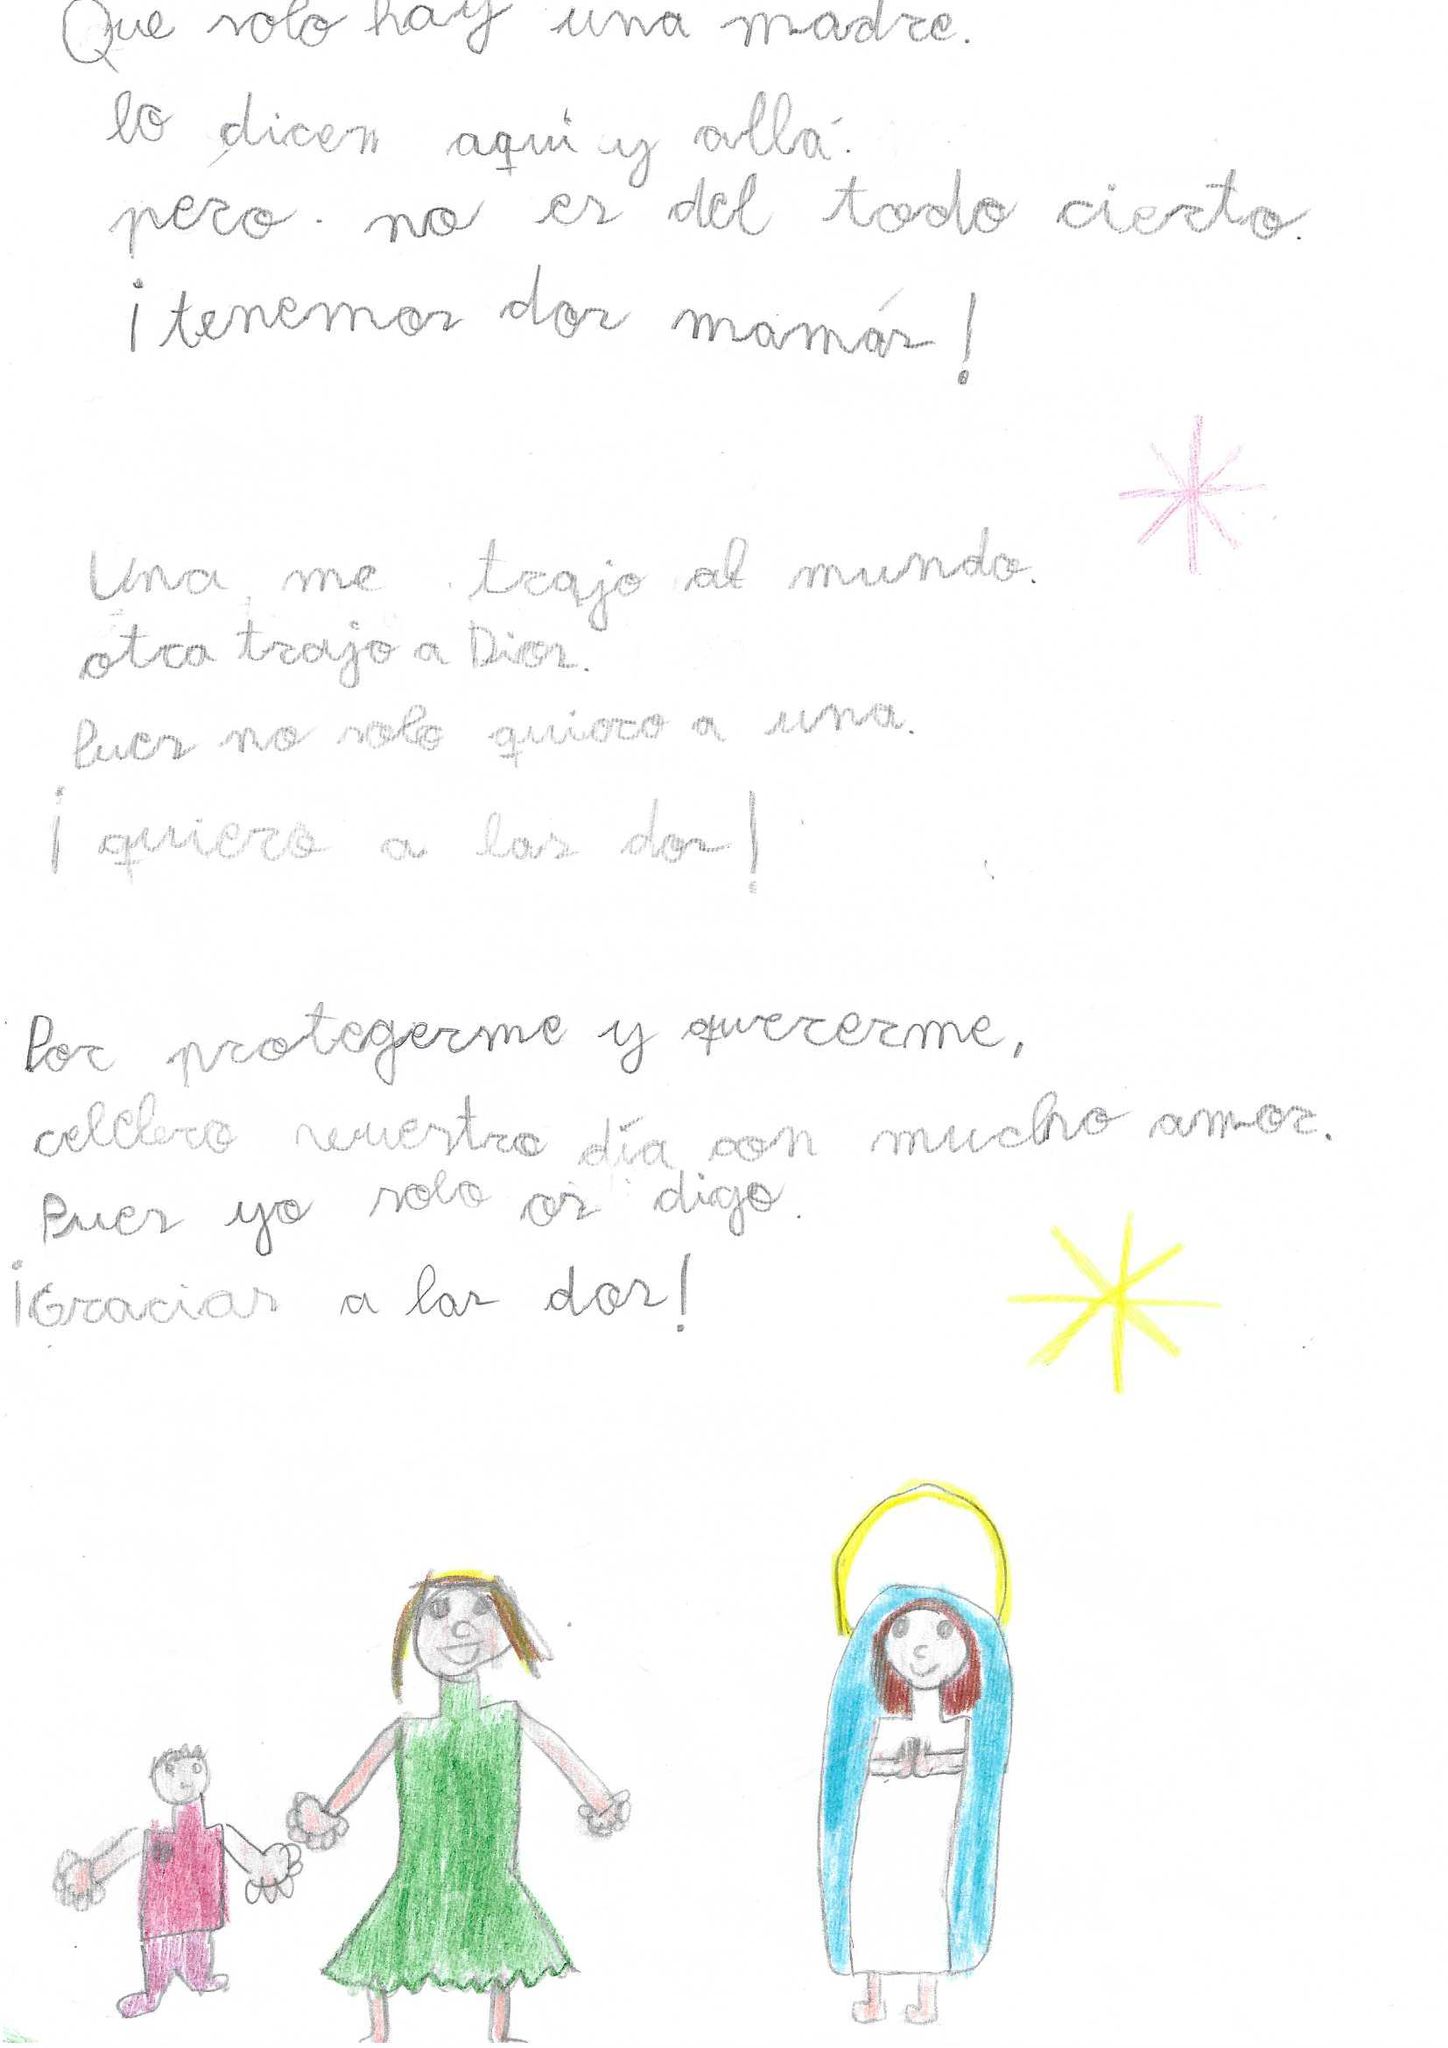 Que solo hay una madre.
lo dicen aquí y allá.
pero no es del todo cierto.
¡tenemos dos mamás!
Una me trajo al mundo.
otra trajo a Dios.
Pues no solo quiero a una.
¡quiero a las dos!
Por protegerme y quererme,
celebro vuestro día con mucho amor.
Pues yo solo os digo.
¡Gracias a las dos!